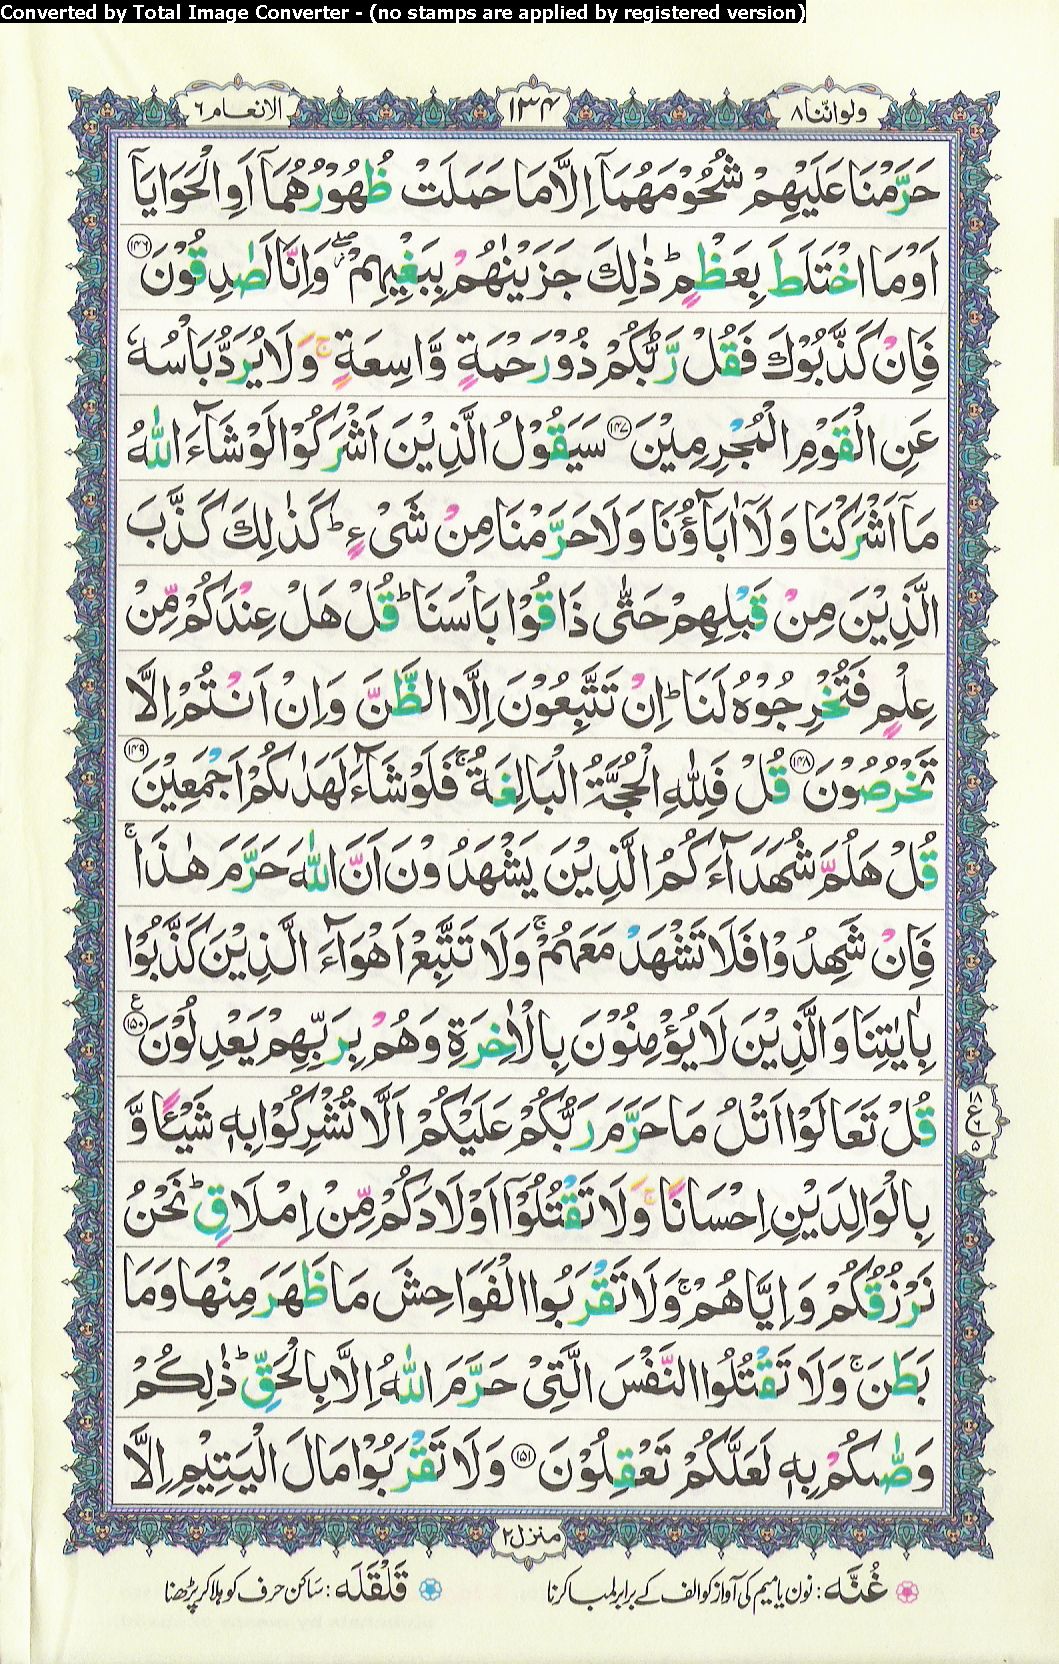 Converted by Total Image Converter - (no stamps are applied by registered version)
ولواننا ۸
۱۳۴
الانعام ۶
حَرَّمْنَا عَلَيْهِمْ شُحُوْمَهُمَاۤ اِلَّا مَا حَمَلَتْ ظُهُوْرُهُمَاۤ اَوِ الْحَوَايَاۤ
اَوْ مَا اخْتَلَطَ بِعَظْمٍ ؕ ذٰلِكَ جَزَيْنٰهُمْ بِبَغْيِهِمْ ۖ وَاِنَّا لَصٰدِقُوْنَ ﴿۱۴۶﴾
فَاِنْ كَذَّبُوْكَ فَقُلْ رَّبُّكُمْ ذُوْ رَحْمَةٍ وَّاسِعَةٍ ۚ وَلَا يُرَدُّ بَاْسُهٗ
عَنِ الْقَوْمِ الْمُجْرِمِيْنَ ﴿۱۴۷﴾ سَيَقُوْلُ الَّذِيْنَ اَشْرَكُوْا لَوْ شَآءَ اللّٰهُ
مَاۤ اَشْرَكْنَا وَلَاۤ اٰبَآؤُنَا وَلَا حَرَّمْنَا مِنْ شَیْءٍ ؕ كَذٰلِكَ كَذَّبَ
الَّذِيْنَ مِنْ قَبْلِهِمْ حَتّٰى ذَاقُوْا بَاْسَنَا ؕ قُلْ هَلْ عِنْدَكُمْ مِّنْ
عِلْمٍ فَتُخْرِجُوْهُ لَنَا ؕ اِنْ تَتَّبِعُوْنَ اِلَّا الظَّنَّ وَاِنْ اَنْتُمْ اِلَّا
تَخْرُصُوْنَ ﴿۱۴۸﴾ قُلْ فَلِلّٰهِ الْحُجَّةُ الْبَالِغَةُ ۚ فَلَوْ شَآءَ لَهَدٰىكُمْ اَجْمَعِيْنَ ﴿۱۴۹﴾
قُلْ هَلُمَّ شُهَدَآءَكُمُ الَّذِيْنَ يَشْهَدُوْنَ اَنَّ اللّٰهَ حَرَّمَ هٰذَا ۚ
فَاِنْ شَهِدُوْا فَلَا تَشْهَدْ مَعَهُمْ ۚ وَلَا تَتَّبِعْ اَهْوَآءَ الَّذِيْنَ كَذَّبُوْا
بِاٰيٰتِنَا وَالَّذِيْنَ لَا يُؤْمِنُوْنَ بِالْاٰخِرَةِ وَهُمْ بِرَبِّهِمْ يَعْدِلُوْنَ ﴿۱۵۰﴾ ع
قُلْ تَعَالَوْا اَتْلُ مَا حَرَّمَ رَبُّكُمْ عَلَيْكُمْ اَلَّا تُشْرِكُوْا بِهٖ شَيْـًٔا وَّ
۱۸
ع ۶
۵
بِالْوَالِدَيْنِ اِحْسَانًا ۚ وَلَا تَقْتُلُوْۤا اَوْلَادَكُمْ مِّنْ اِمْلَاقٍ ؕ نَحْنُ
نَرْزُقُكُمْ وَاِيَّاهُمْ ۚ وَلَا تَقْرَبُوا الْفَوَاحِشَ مَا ظَهَرَ مِنْهَا وَمَا
بَطَنَ ۚ وَلَا تَقْتُلُوا النَّفْسَ الَّتِیْ حَرَّمَ اللّٰهُ اِلَّا بِالْحَقِّ ؕ ذٰلِكُمْ
وَصّٰىكُمْ بِهٖ لَعَلَّكُمْ تَعْقِلُوْنَ ﴿۱۵۱﴾ وَلَا تَقْرَبُوْا مَالَ الْيَتِيْمِ اِلَّا
منزل ۲
غُنَّه: نون یا میم کی آواز کو الف کے برابر لمبا کرنا
قَلْقَلَه: ساکن حرف کو ہلا کر پڑھنا